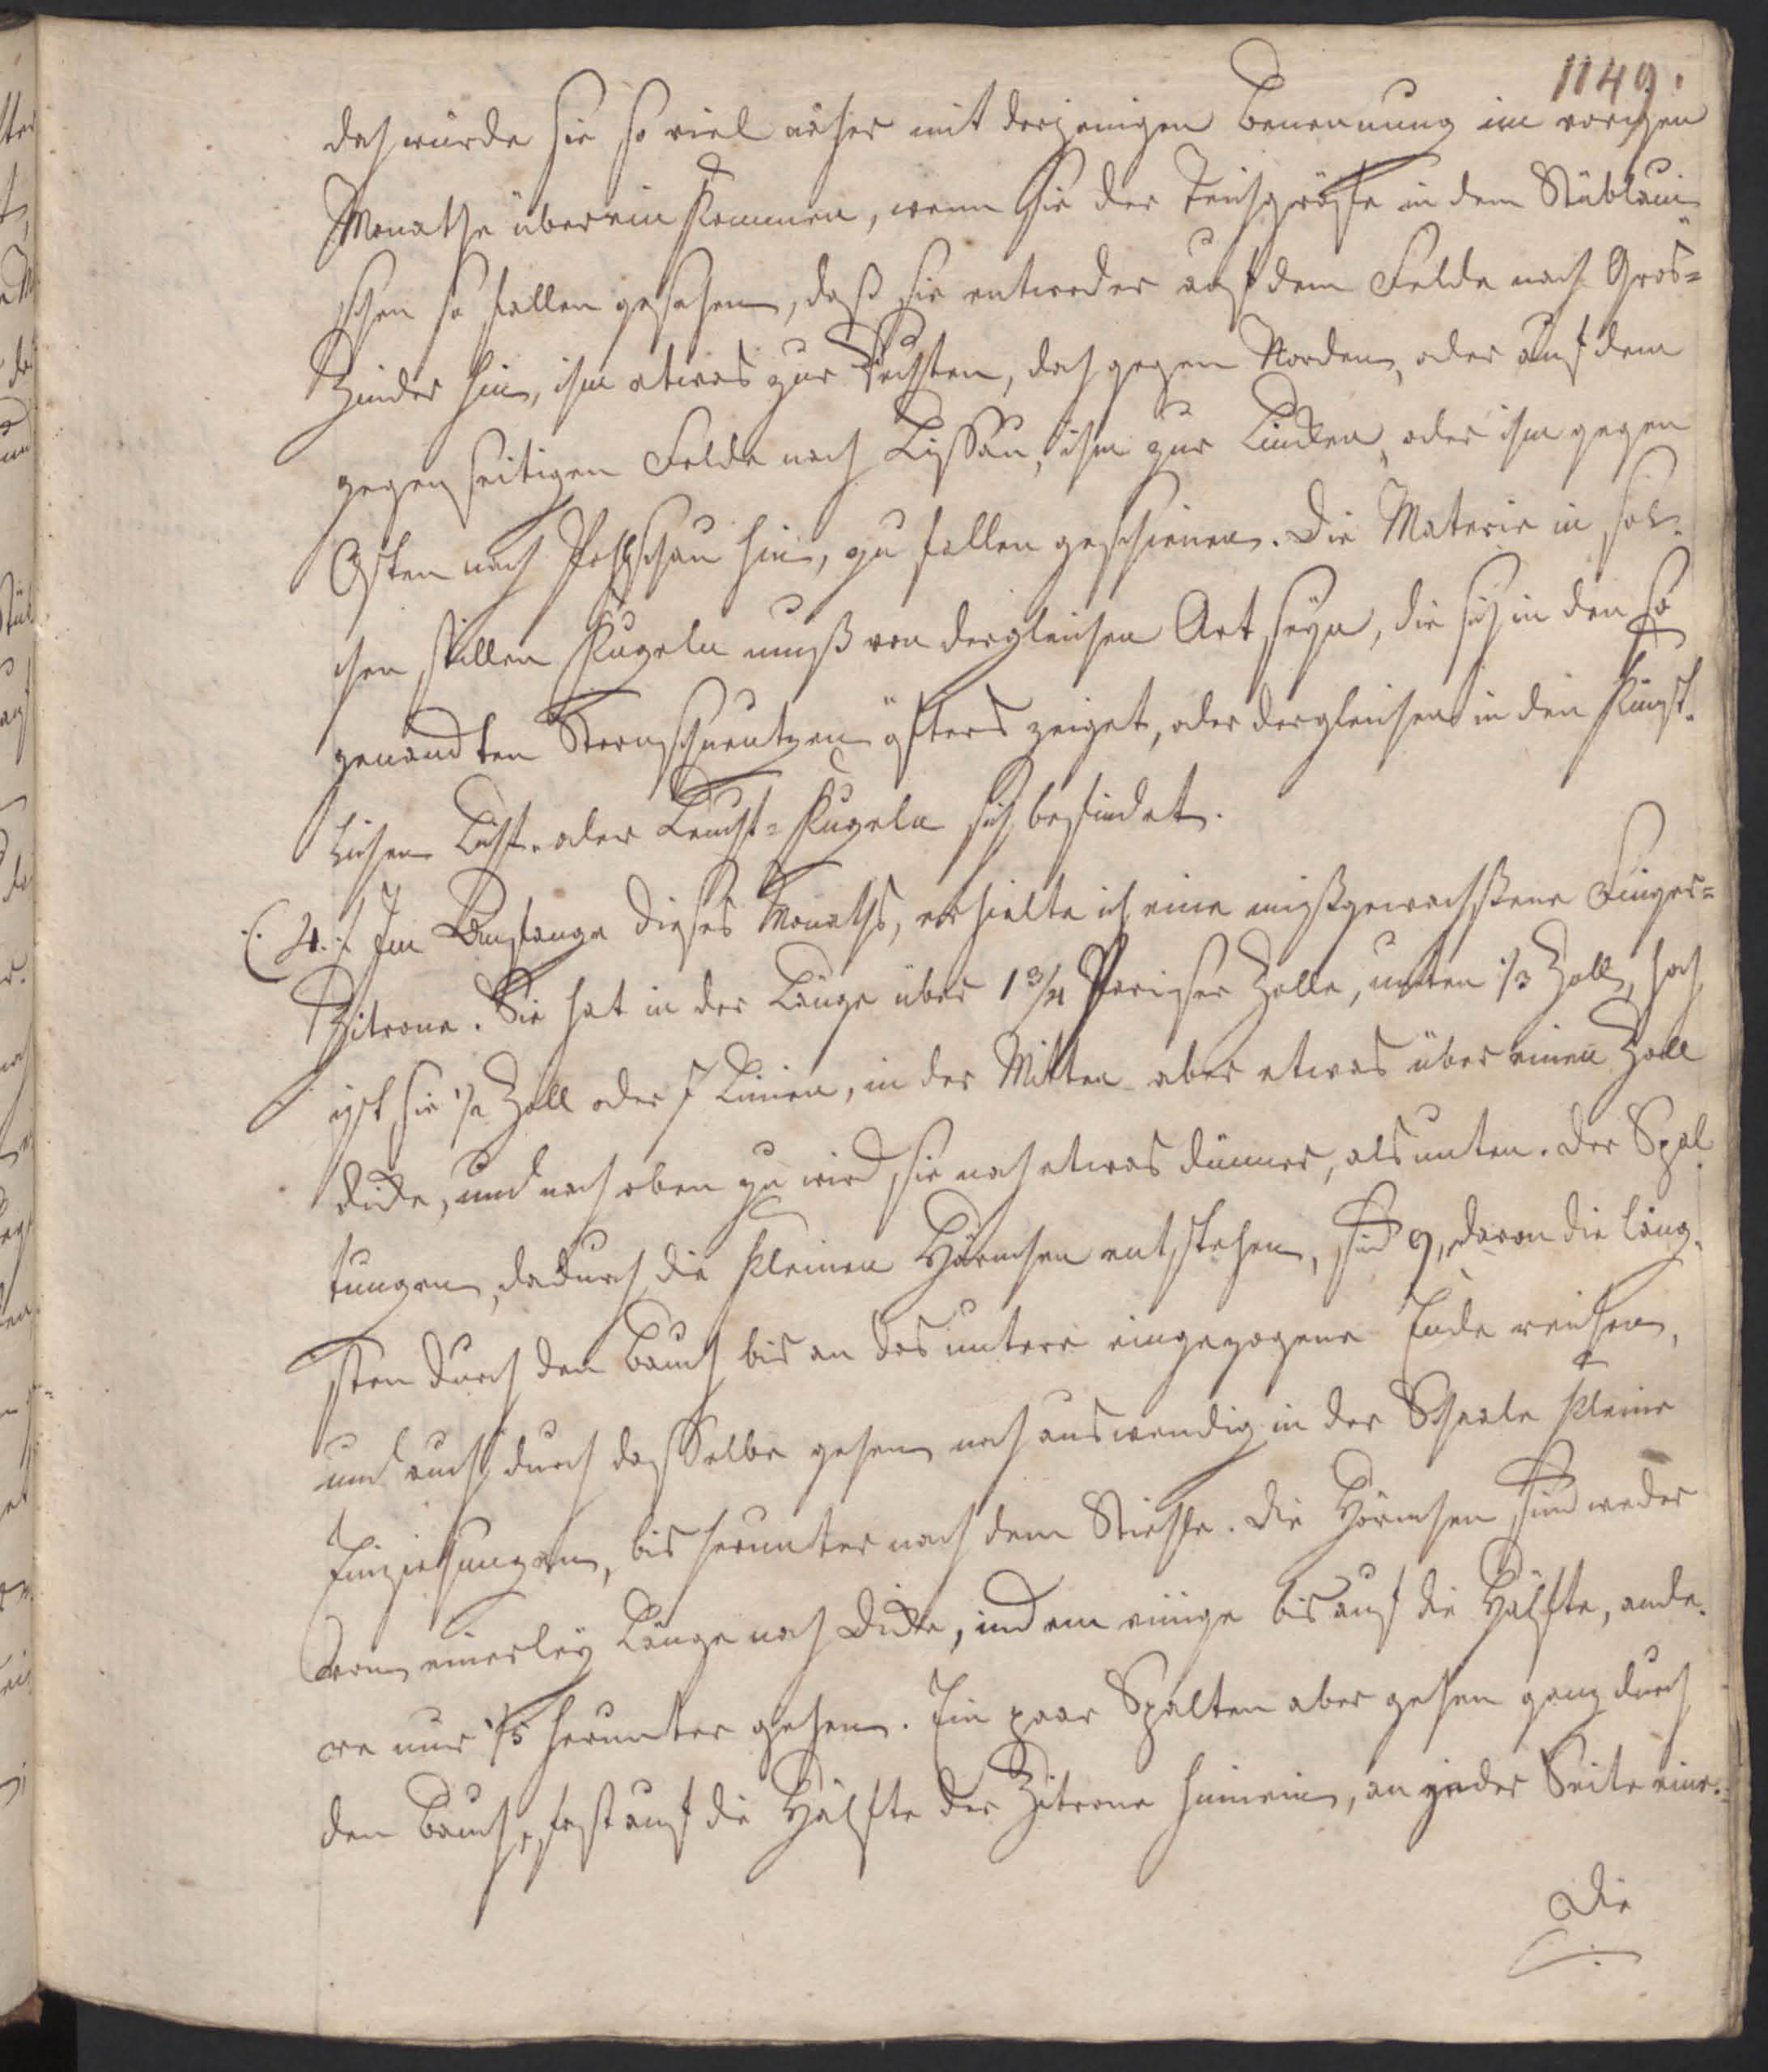 1149.
doch würde sie so viel näher mit derjenigen Benennung im vorigen
Monathe überein kommen, wenn sie der Teichgräffe in dem Stüblaui-
schen so fallen gesehen, daß sie entweder auf dem Felde nach Gros=
Zünder hin, ihm etwas zur Rechten, doch gegen Norden, oder auf dem
gegenseitigen Felde nach Lissau, ihm zur Lincken, oder ihm gegen
Osten nach hin, zu fallen geschienen. Die Materie in sol-
chen stillen Kugeln muß von dergleichen Art seyn, die sich in den so
genandten Sternschneutzen öfters zeiget, oder dergleichen in den künst-
lichen Lust- oder Leucht=Kugeln sich befindet.
(: 4. :) Im Anfange dieses Monaths, erhielte ich eine mißgewachsene Finger=
Zitrone. Sie hat in der Länge über 1 3/4 Pariser Zolle, unten 1/3 Zoll, hoch
ist sie 1/2 Zoll oder 7 Linien, in der Mitten aber etwas über einen Zoll
dicke, und nach oben zu wird sie noch etwas dünner, als unten. Der Spal
tungen, dadurch die kleinen Hörnchen entstehen, sind 9, davon die läng-
sten durch den Bauch bis an das untere eingezogene Ende reichen,
und auch durch dasselbe gehen noch auswendig in der Schaale kleine
Einziehungen, bis herunter nach dem Stiehle. Die Hörnchen sind weder
von einerley Länge noch Dicke, indem einige bis auf die Hälfte, ande-
re nur 1/5 herunter gehen. Ein paar Spalten aber gehen ganz durch
den Bauch, fast auf die Hälfte der Zitrone hinein, an jeder Seite eine.
Die